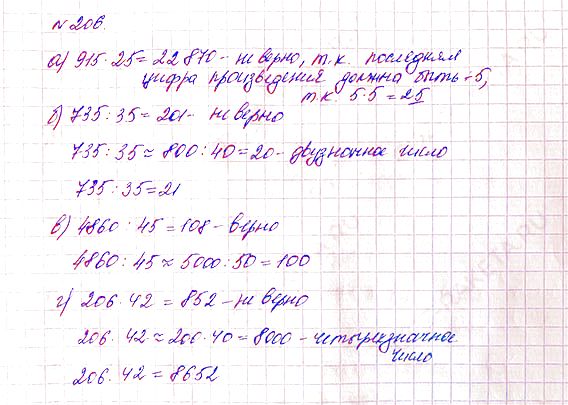 № 206.
а) 915 · 25 = 22 870 - не верно, т.к. последняя
цифра произведения должна быть - 5,
т.к. 5·5 = 25
б) 735 : 35 = 201 - не верно
735 : 35 ≈ 800 : 40 = 20 - двузначное число
735 : 35 = 21
в) 4860 : 45 = 108 - верно
4860 : 45 ≈ 5000 : 50 = 100
г) 206 · 42 = 852 - не верно
206 · 42 ≈ 200 · 40 = 8000 - четырехзначное
число
206 · 42 = 8652